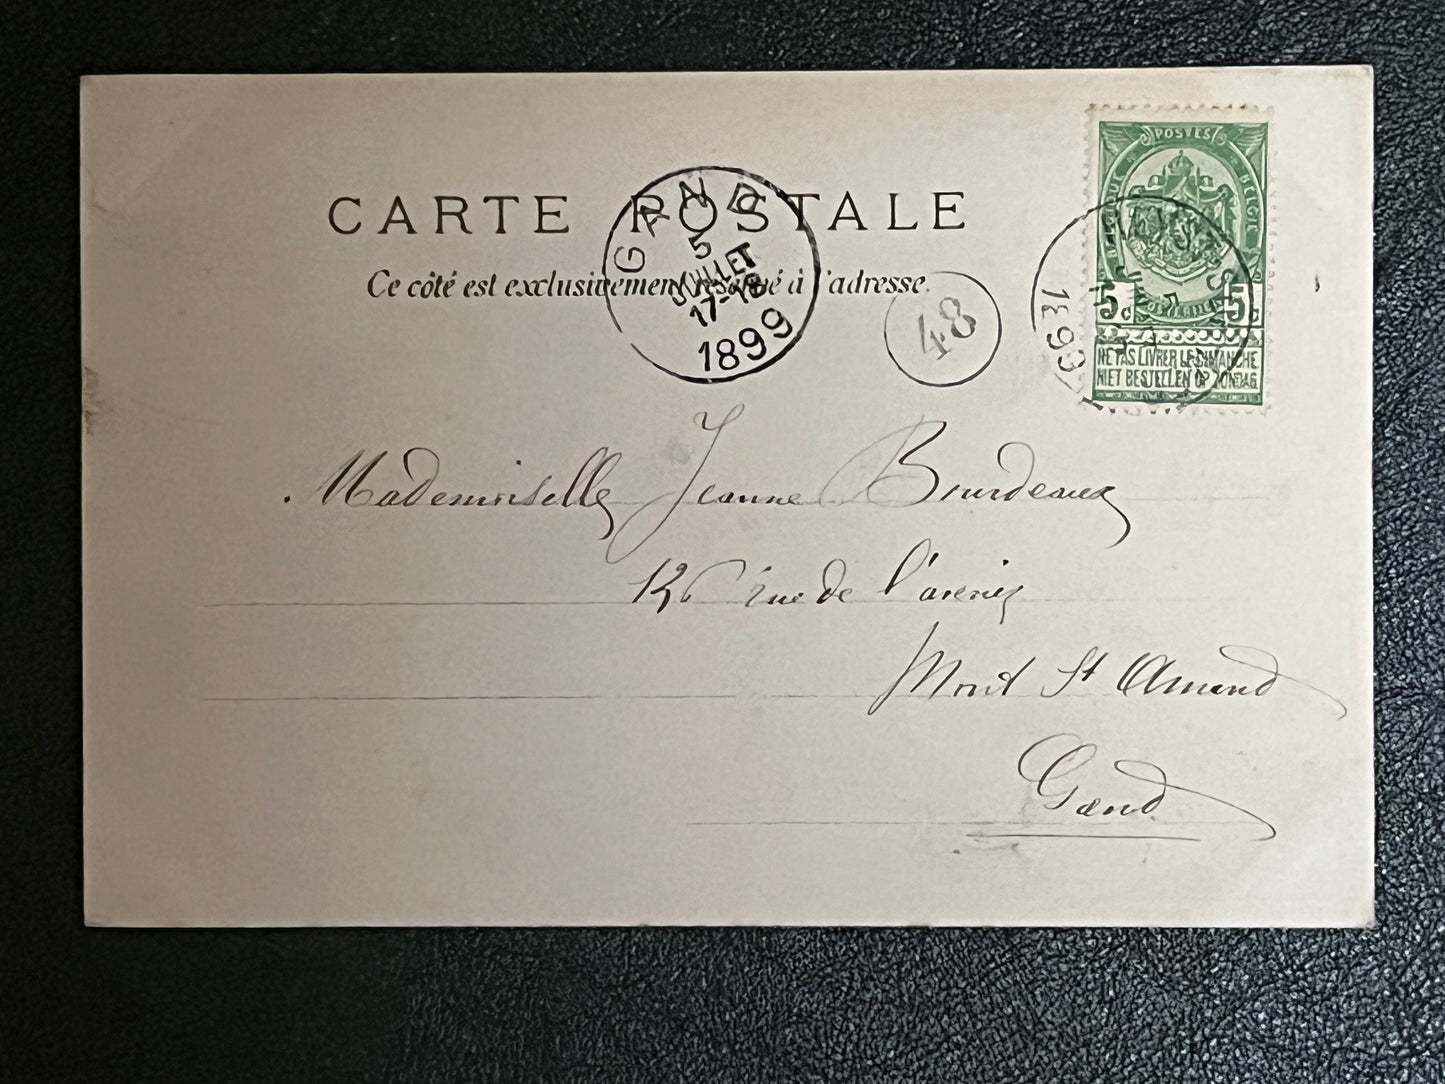 CARTE POSTALE
Ce côté est exclusivement réservé à l'adresse.
GAND
5
JUILLET
17-18
1899
48
POSTES
BELGIQUE BELGIE
5c 5c
NE PAS LIVRER LE DIMANCHE
NIET BESTELLEN OP ZONDAG
1899
Mademoiselle Jeanne Bourdeaux
rue de l'avenir
Mont St Amand
Gand